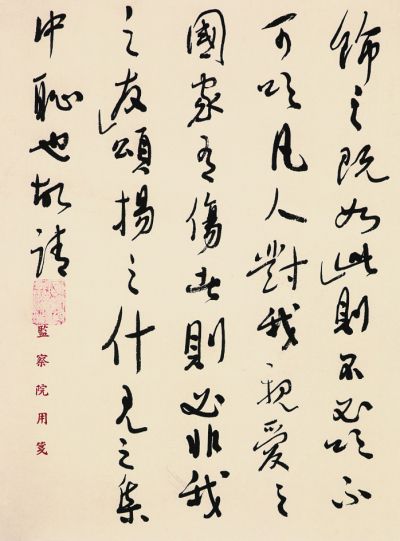 之既如此則不必不
可凡人對我親愛之
國家有傷者則必非我
之友頌揚之什見之集
中恥也敬請
監察院用箋